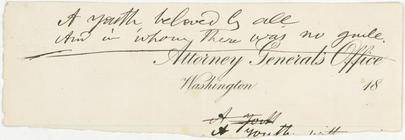 A youth beloved by all
And in whom there was no guile.
Attorney General's Office
Washington 18
A youth
A youth with